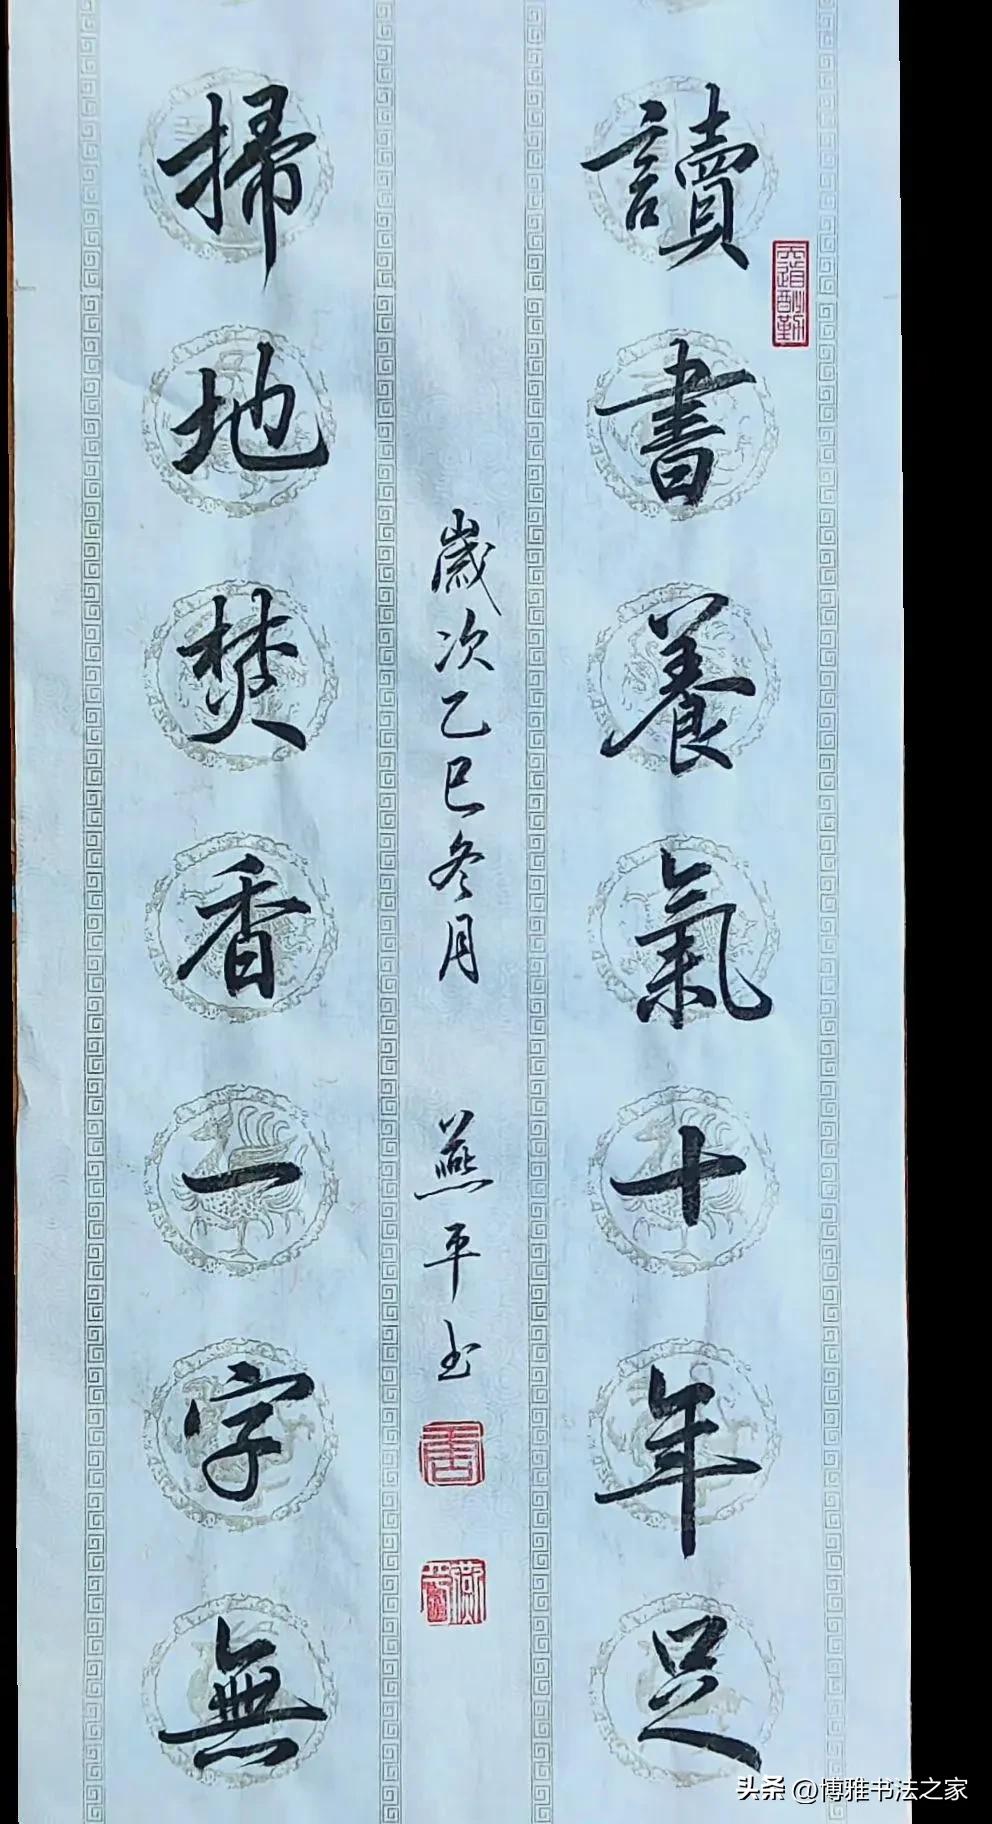 讀書養氣十年足
天道酬勤
歲次乙巳冬月 燕平书
掃地焚香一字無
头条 @博雅书法之家